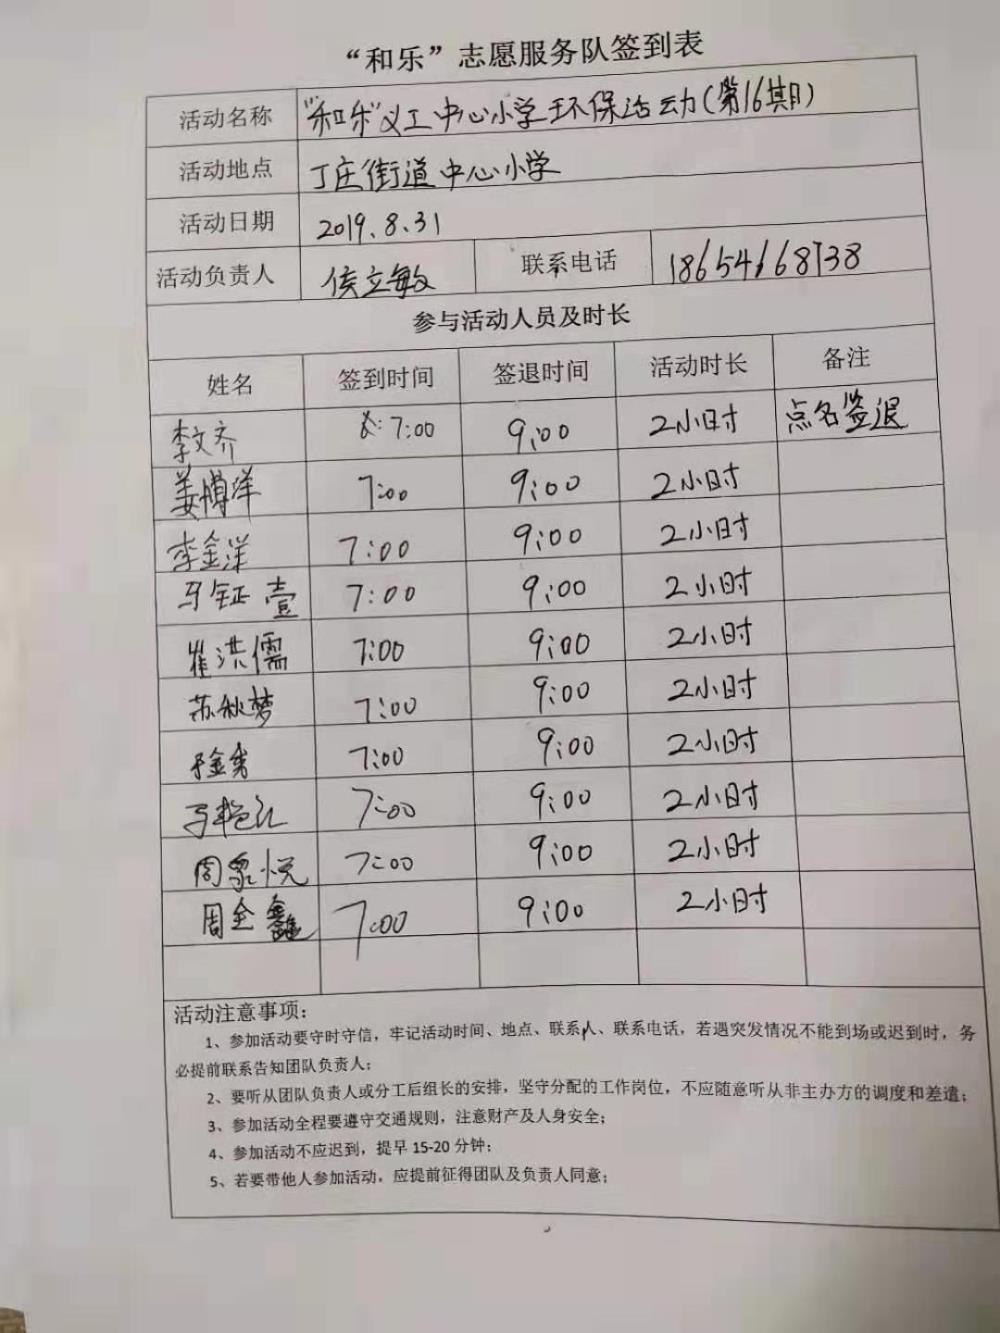 “和乐”志愿服务队签到表
活动名称 “和乐”义工中心小学环保活动(第16期)
活动地点 丁庄街道中心小学
活动日期 2019.8.31
活动负责人 侯立敏 联系电话 18654668738
参与活动人员及时长
姓名 签到时间 签退时间 活动时长 备注
李文齐 7:00 9:00 2小时 点名签退
姜博洋 7:00 9:00 2小时
李金洋 7:00 9:00 2小时
马钲壹 7:00 9:00 2小时
崔洪儒 7:00 9:00 2小时
苏秋梦 7:00 9:00 2小时
7:00 9:00 2小时
马艳红 7:00 9:00 2小时
周家悦 7:00 9:00 2小时
周全鑫 7:00 9:00 2小时
活动注意事项:
1、参加活动要守时守信，牢记活动时间、地点、联系人、联系电话，若遇突发情况不能到场或迟到时，务
必提前联系告知团队负责人；
2、要听从团队负责人或分工后组长的安排，坚守分配的工作岗位，不应随意听从非主办方的调度和差遣；
3、参加活动全程要遵守交通规则，注意财产及人身安全；
4、参加活动不应迟到，提早 15-20 分钟；
5、若要带他人参加活动，应提前征得团队及负责人同意；